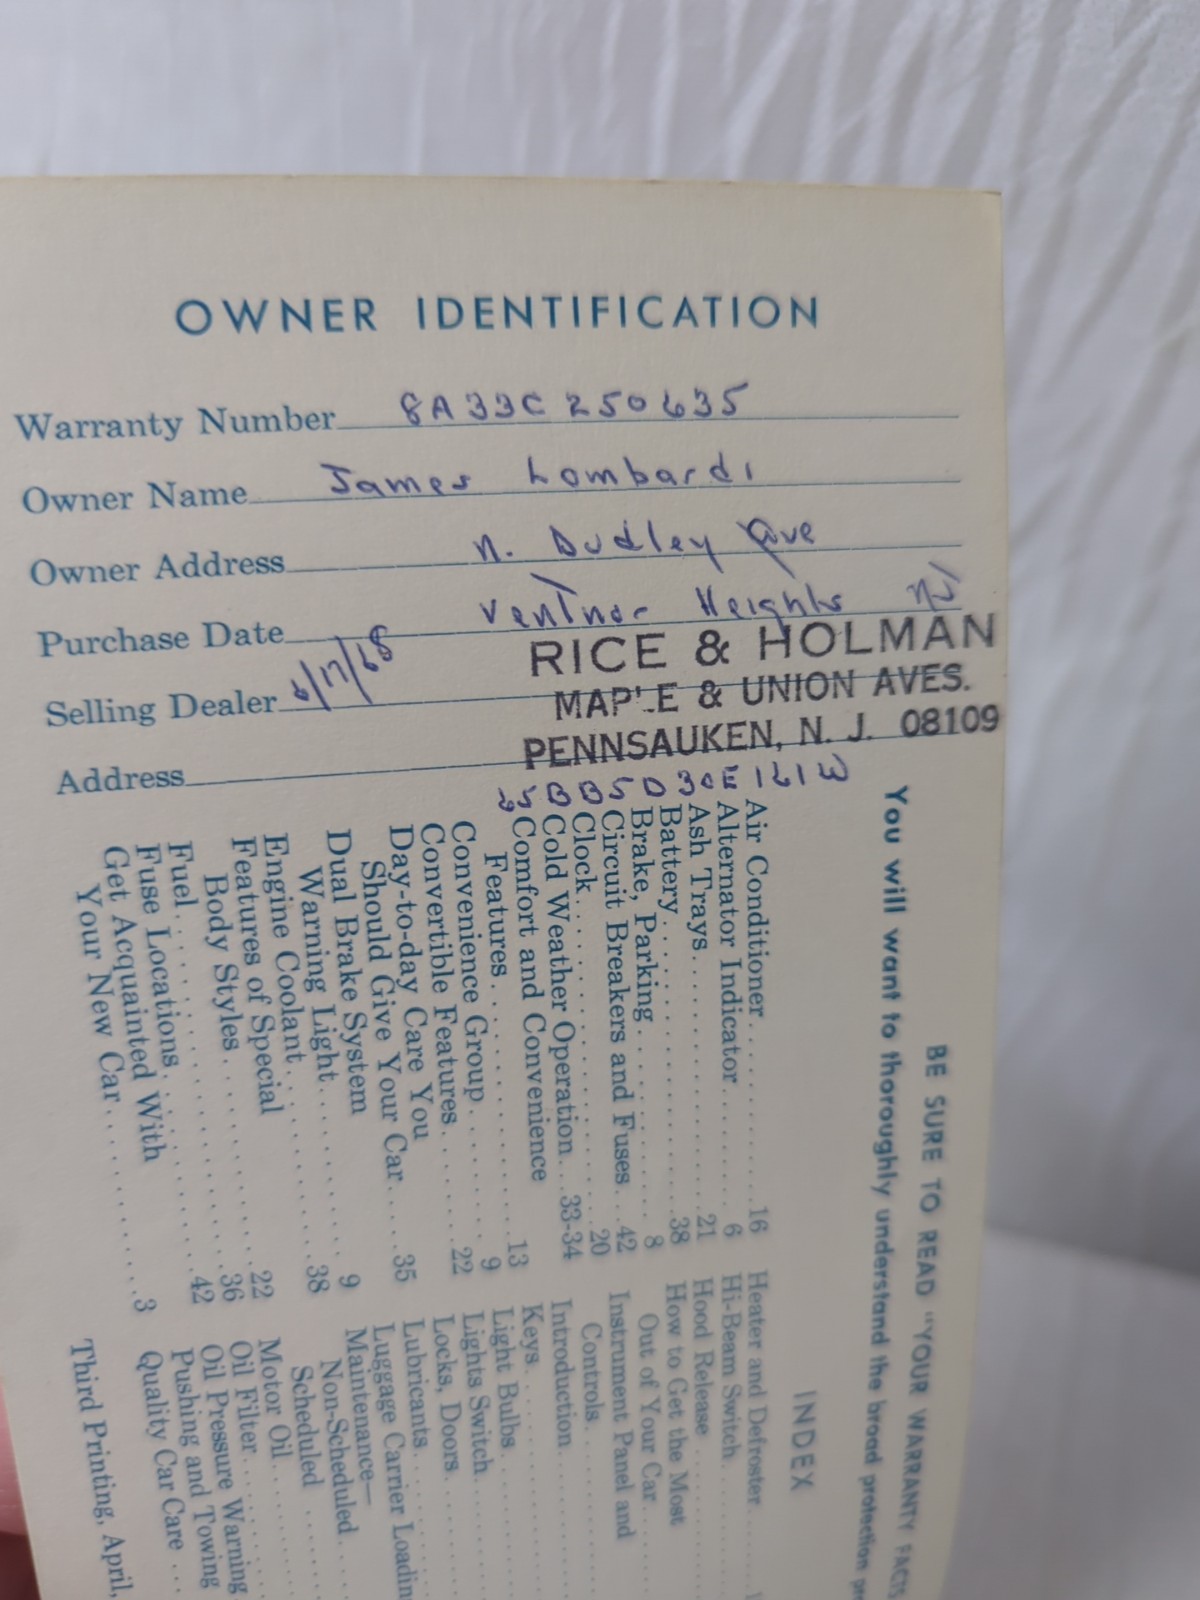 OWNER IDENTIFICATION
Warranty Number 8A33C250635
Owner Name James Lombardi
Owner Address N. Dudley Ave
Ventnor Heights NJ
Purchase Date 6/17/68
RICE & HOLMAN
Selling Dealer
MAPLE & UNION AVES.
PENNSAUKEN, N. J. 08109
Address
BE SURE TO READ "YOUR WARRANTY FACTS
You will want to thoroughly understand the broad protection
INDEX
Air Conditioner 16
Alternator Indicator 6
Ash Trays 21
Battery 38
Brake, Parking 8
Circuit Breakers and Fuses 42
Clock 20
Cold Weather Operation 33-34
Comfort and Convenience
Features 13
Convenience Group 9
Convertible Features 22
Day-to-day Care You
Should Give Your Car 35
Dual Brake System
Warning Light 9
Engine Coolant 38
Features of Special
Body Styles 22
Fuel 36
Fuse Locations 42
Get Acquainted With
Your New Car 3
Heater and Defroster
Hi-Beam Switch
Hood Release
How to Get the Most
Out of Your Car
Instrument Panel and
Controls
Introduction
Keys
Light Bulbs
Lights Switch
Locks, Doors
Lubricants
Luggage Carrier
Maintenance—
Non-Scheduled
Scheduled
Motor Oil
Oil Filter
Oil Pressure Warning
Pushing and Towing
Quality Car Care
Third Printing, April,